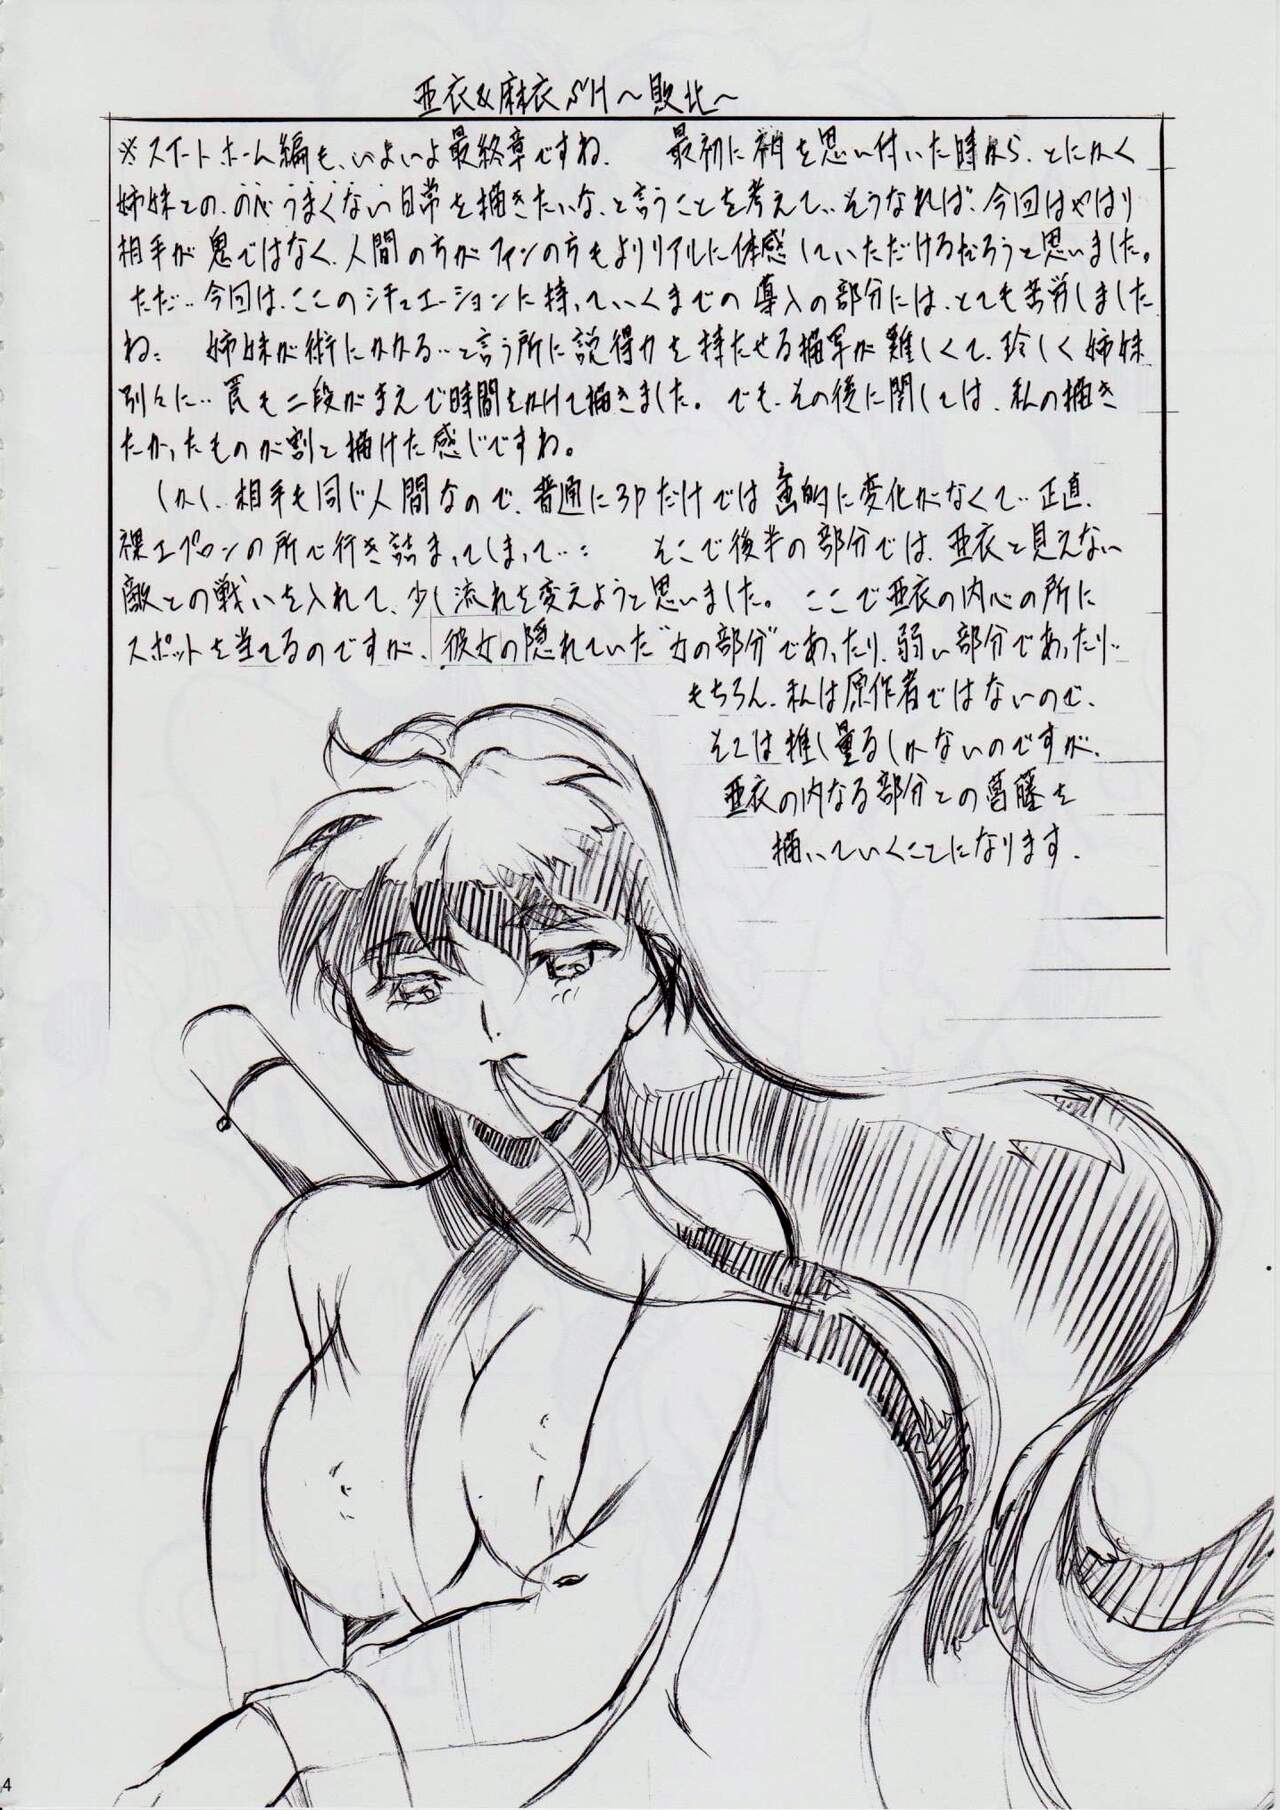 亜衣&麻衣SH～敗北～
※スイートホーム編も、いよいよ最終章ですね. 最初に神を思い付いた時から、とにかく
姉妹との、のどうまくない日常を描きたいな、と言うことを考えて‥そうなれば、今回はやはり
相手が鬼ではなく、人間の方がファンの方もよりリアルに体感していただけるだろうと思いました。
ただ‥今回は、ここのシチュエーションに持っていくまでの導入の部分には、とても苦労しました
ね： 姉妹が術にかかる‥と言う所に説得力を持たせる描写が難しくて、珍しく姉妹
別々に‥罠も二段がまえで時間をかけて描きました。でも、その後に関しては、私の描き
たかったものが割と描けた感じですね。
しかし‥相手も同じ人間なので、普通に3Pだけでは画的に変化がなくて‥正直、
裸エプロンの所で行き詰まってしまって‥： そこで後半の部分では、亜衣と見えない
敵との戦いを入れて、少し流れを変えようと思いました。ここで亜衣の内心の所に
スポットを当てるのですが、彼女の隠れていた“女の部分”であったり、弱い部分であったり‥
もちろん、私は原作者ではないので、
そこは推し量るしかないのですが、
亜衣の内なる部分との葛藤を
描いていくことになります.
4